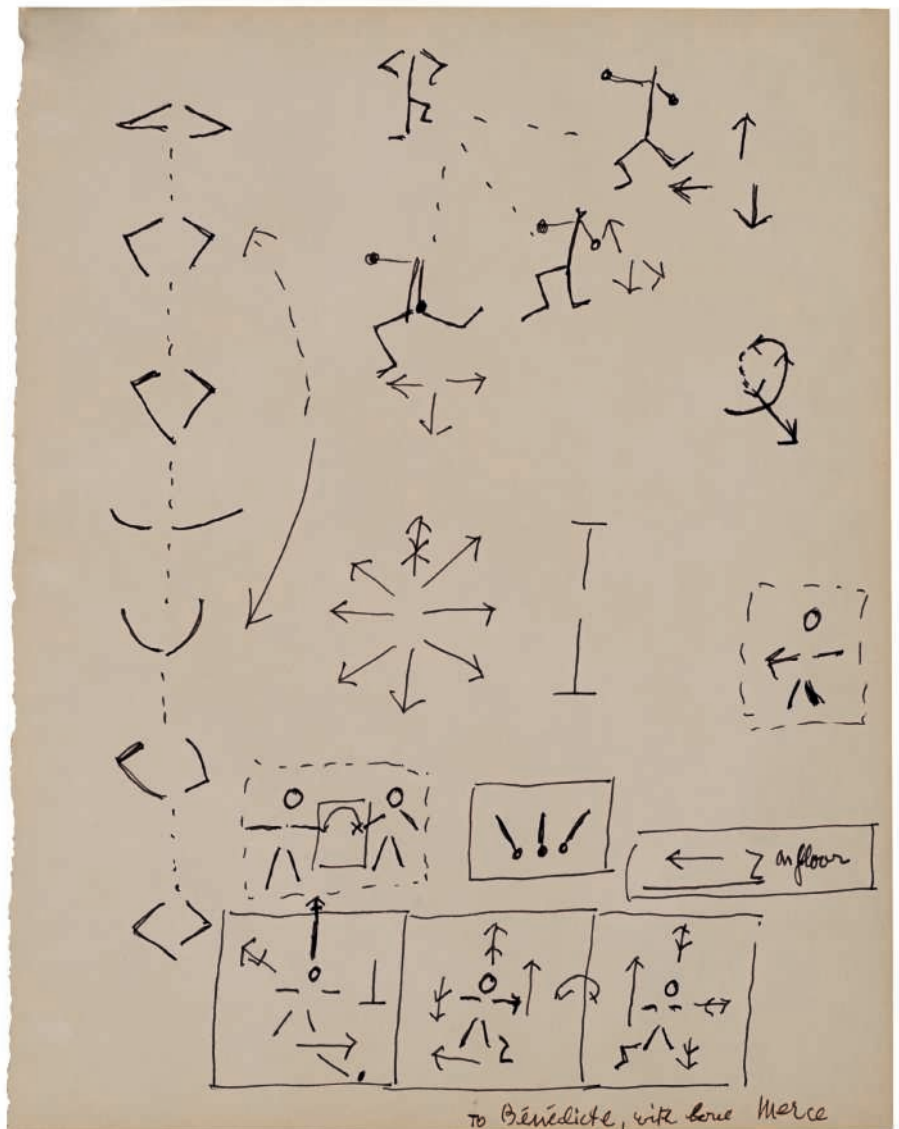 on floor
To Bénédicte, with love Merce